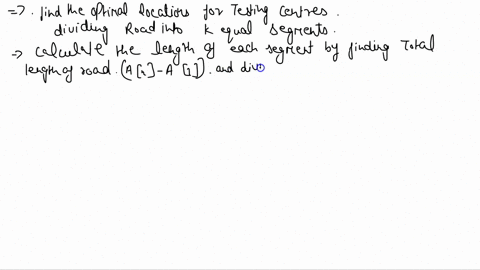 => . find the oprimal locations for Testing Centres .
dividing Road into K equal segments .
=> Calculate the length of each segment by finding Total
length of road . (A[n] - A[1]) . and divi